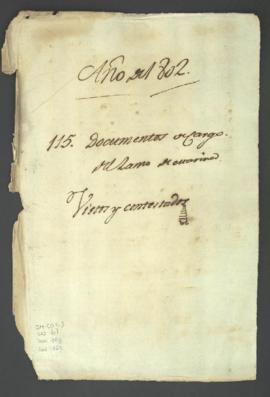 Año de 1802.
115. Documentos de Cargo.
del Ramo de marina
Vistos y contestados